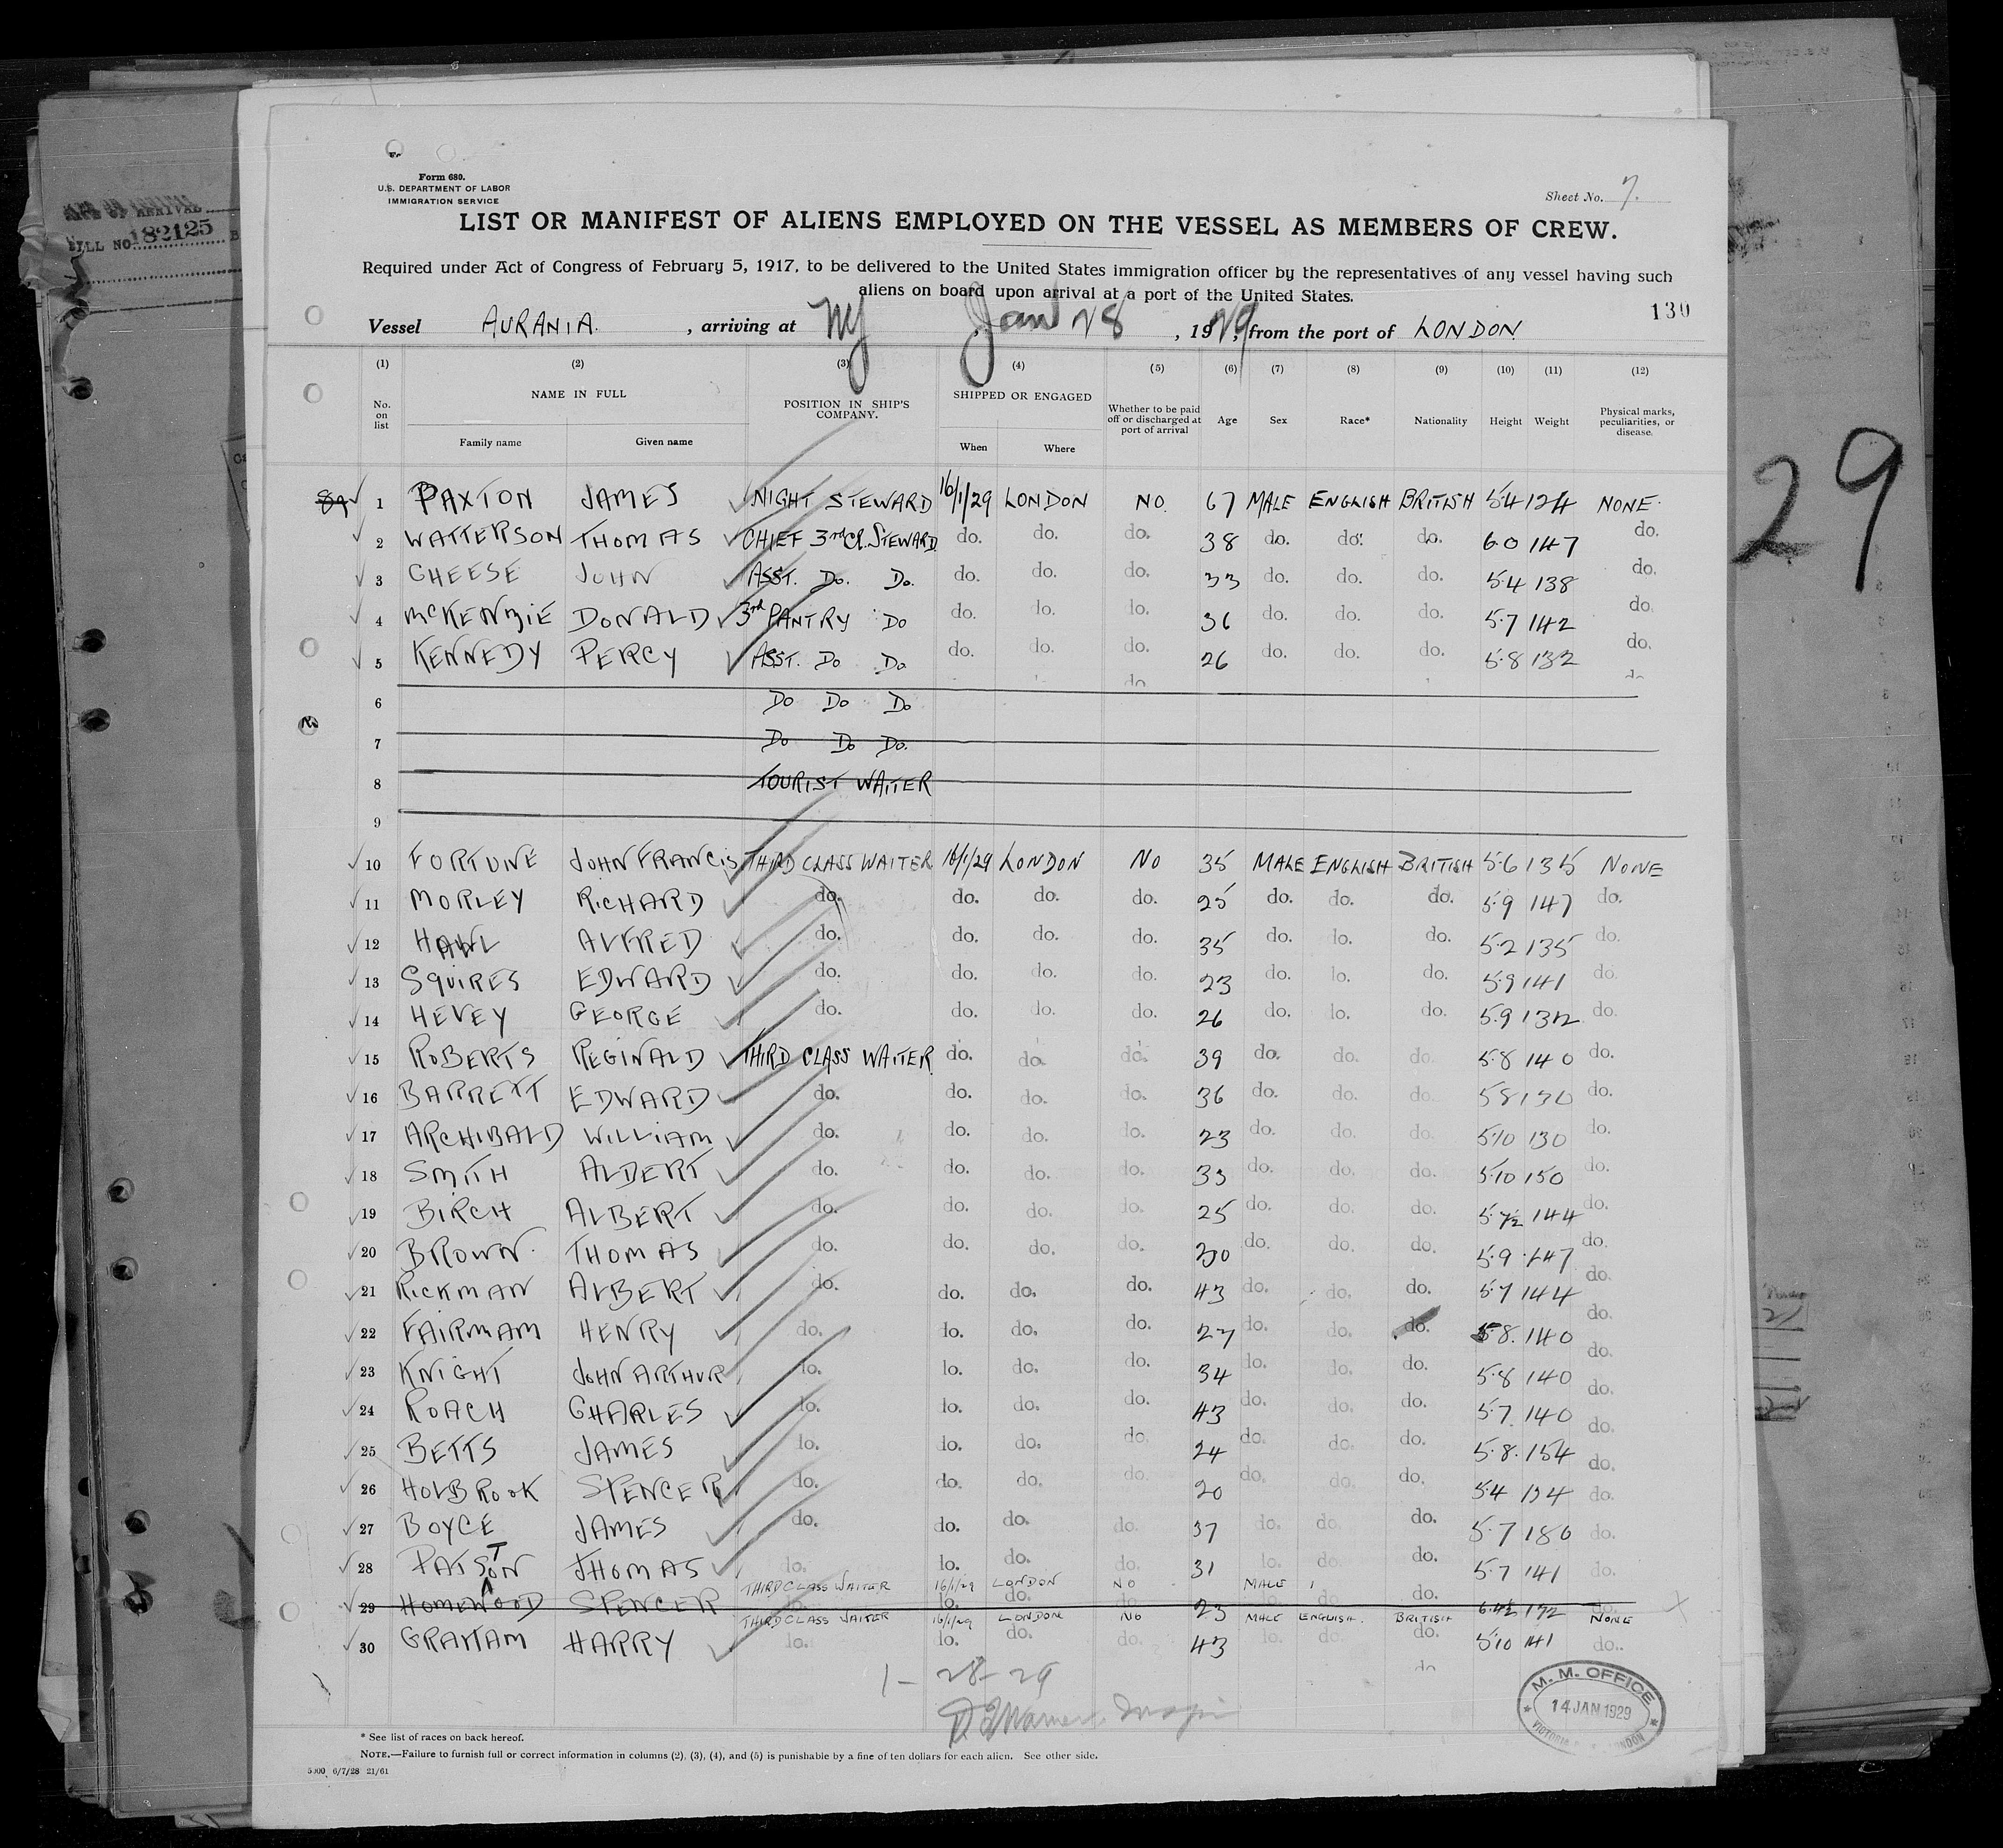 BILL NO. 182125
Form 680.
U.S. DEPARTMENT OF LABOR
IMMIGRATION SERVICE
Sheet No. 7.
LIST OR MANIFEST OF ALIENS EMPLOYED ON THE VESSEL AS MEMBERS OF CREW.
Required under Act of Congress of February 5, 1917, to be delivered to the United States immigration officer by the representatives of any vessel having such
aliens on board upon arrival at a port of the United States.
130
Vessel AURANIA. , arriving at NY , Jan 28 , 1929, from the port of LONDON
(1) (2) (3) (4) (5) (6) (7) (8) (9) (10) (11) (12)
No. on list NAME IN FULL Family name Given name POSITION IN SHIP'S COMPANY. SHIPPED OR ENGAGED When Where Whether to be paid off or discharged at port of arrival Age Sex Race* Nationality Height Weight Physical marks, peculiarities, or disease.
89 1 PAXTON JAMES NIGHT STEWARD 16/1/29 LONDON NO. 67 MALE ENGLISH BRITISH 5.4 124 NONE.
2 WATTERSON THOMAS CHIEF 3rd CL. STEWARD do. do. do. 38 do. do. do. 6.0 147 do.
3 CHEESE JOHN ASST. Do. Do. do. do. do. 33 do. do. do. 5.4 138 do.
4 McKENZIE DONALD 3rd PANTRY Do do. do. do. 36 do. do. do. 5.7 142 do.
5 KENNEDY PERCY ASST. Do Do do. do. do. 26 do. do. do. 5.8 132 do.
6 Do Do Do
7 Do Do Do.
8 TOURIST WAITER
9
10 FORTUNE JOHN FRANCIS THIRD CLASS WAITER 16/1/29 LONDON NO 35 MALE ENGLISH BRITISH 5.6 135 NONE
11 MORLEY RICHARD do. do. do. do. 25 do. do. do. 5.9 147 do.
12 HALL ALFRED do. do. do. do. 35 do. do. do. 5.2 135 do.
13 SQUIRES EDWARD do. do. do. do. 23 do. do. do. 5.9 141 do.
14 HEVEY GEORGE do. do. do. do. 26 do. do. do. 5.9 132 do.
15 ROBERTS REGINALD THIRD CLASS WAITER do. do. do. 39 do. do. do. 5.8 140 do.
16 BARRETT EDWARD do. do. do. do. 36 do. do. do. 5.8 130 do.
17 ARCHIBALD WILLIAM do. do. do. do. 23 do. do. do. 5.10 130 do.
18 SMITH ALBERT do. do. do. do. 33 do. do. do. 5.10 150 do.
19 BIRCH ALBERT do. do. do. do. 25 do. do. do. 5.7½ 144 do.
20 BROWN. THOMAS do. do. do. do. 30 do. do. do. 5.9 147 do.
21 RICKMAN ALBERT do. do. do. do. 43 do. do. do. 5.7 144 do.
22 FAIRMAM HENRY do. do. do. do. 27 do. do. do. 5.8. 140 do.
23 KNIGHT JOHN ARTHUR do. do. do. do. 34 do. do. do. 5.8 140 do.
24 ROACH CHARLES do. do. do. do. 43 do. do. do. 5.7 140 do.
25 BETTS JAMES do. do. do. do. 24 do. do. do. 5.8. 154 do.
26 HOLBROOK SPENCER do. do. do. do. 20 do. do. do. 5.4 134 do.
27 BOYCE JAMES do. do. do. do. 37 do. do. do. 5.7 180 do.
28 PATSTON THOMAS do. do. do. do. 31 do. do. do. 5.7 141 do.
THIRD CLASS WAITER 16/1/29 LONDON NO MALE
29 HOMEWOOD SPENCER do. do. 23 do. do. 172 do.
THIRD CLASS WAITER 16/1/29 LONDON NO MALE ENGLISH. BRITISH NONE
30 GRAHAM HARRY do. do. do. do. 43 do. do. do. 5.10 141 do.
1-28-29
M. M. OFFICE
14 JAN 1929
LONDON
* See list of races on back hereof.
NOTE.—Failure to furnish full or correct information in columns (2), (3), (4), and (5) is punishable by a fine of ten dollars for each alien. See other side.
5000 6/7/28 21/61
29